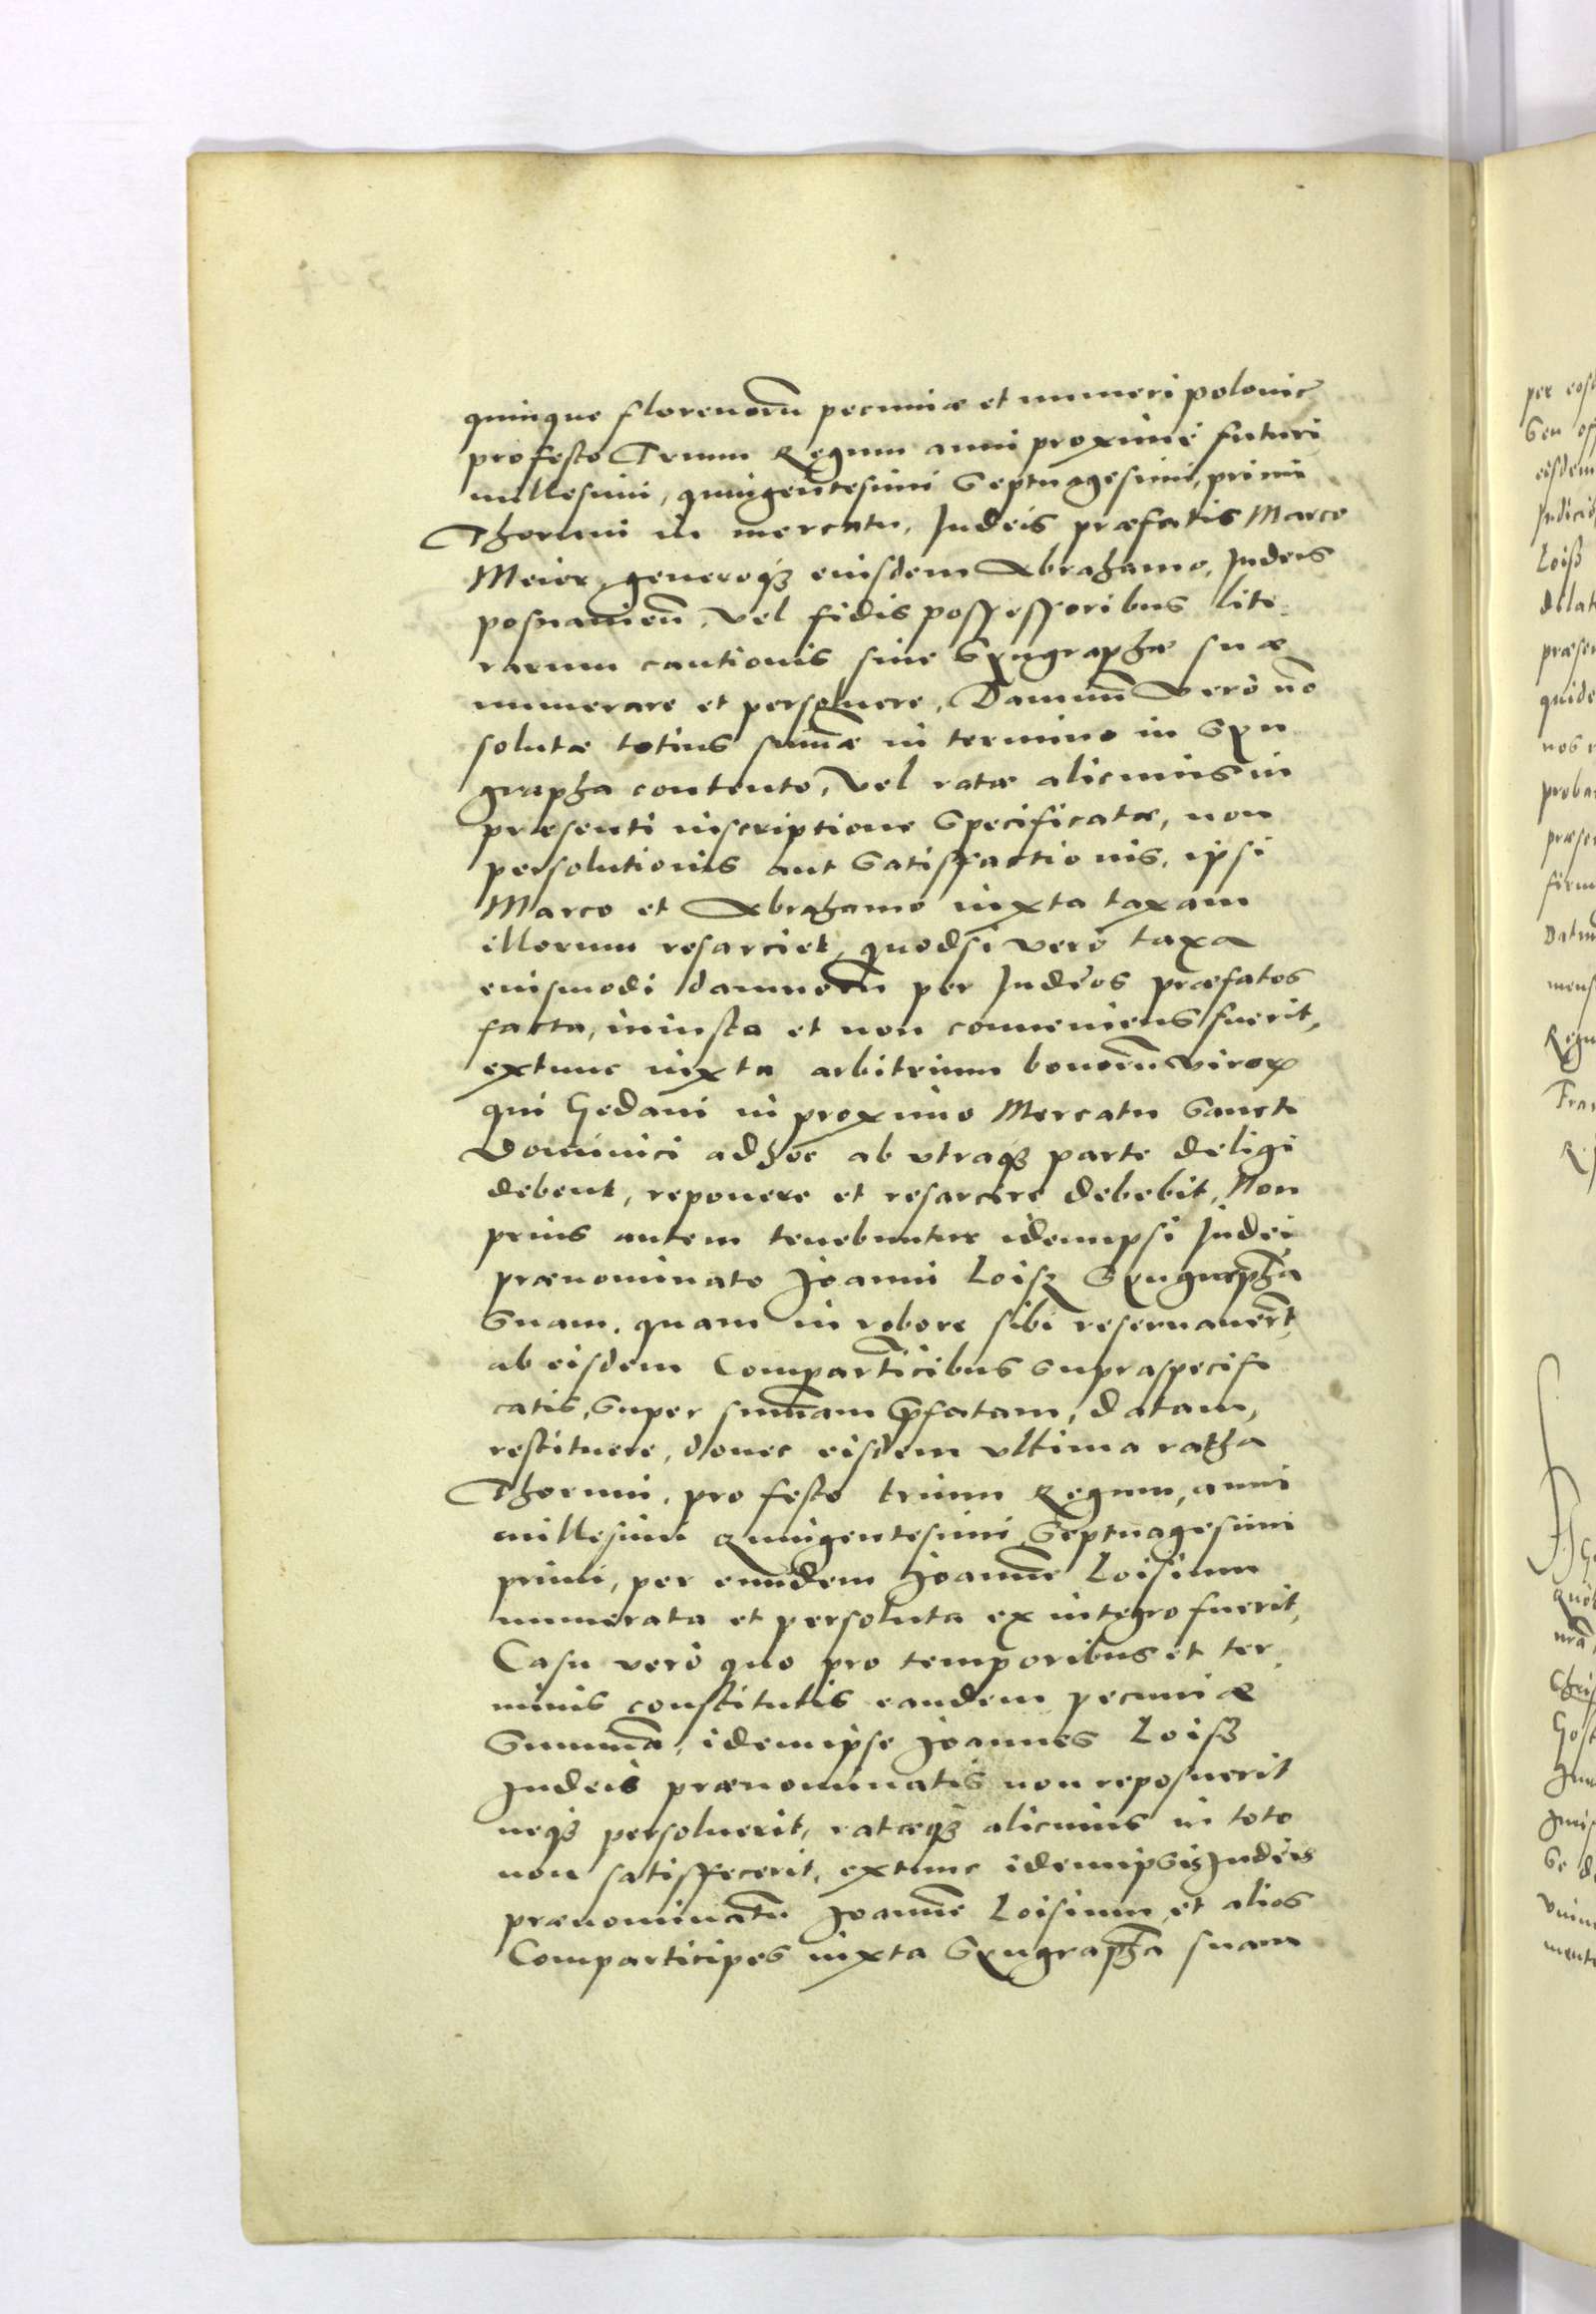 quinque florenorũ pecuniæ et numeri polonic̄
pro festo Trium Regum anni proximè futuri
millesimi, quingentesimi Septuagesimi, primi
Thorunii in mercatu, Judeis præfatis Marco
Meier, generoq₃ eiusdem Abrahamo, Judeis
posnanieñ, vel fidis possessoribus lite
rarum cautionis siue Syngraphæ suæ
numerare et persoluere, Damnũ verò nō
solutæ totius sum̃æ in termino in Syn
grapha contento, vel ratæ alicuius in
præsenti inscriptione Specificatæ, non
persolutionis aut Satisfactionis, ipsi
Marco et Abrahamo iuxta taxam
illorum resarciet, quodsi verò taxa
eiusmodi damnorũ per Judęos præfatos
facta, iniusta et non conueniens fuerit,
extunc iuxta arbitrium bonorũ viroꝝ
qui Gedani in proximo Mercatu Sancti
Dominici ad hoc ab vtraq₃ parte deligi
debent, reponere et resarcire debebit, Non
prius autem tenebuntur idemipsi Judei
prænominato Joanni Loisz Syngraphã
Suam, quam in robore sibi reseruauerũt,
ab eisdem Comparticibus supraspecifi
catis, Super sum̃am p̃fatam, datam,
restituere, donec eisdem vltima ratha
Thorunii, pro festo trium Regum, anni
millesimi Quingentesimi Septuagesimi
primi, per eundem Joannẽ Loisium
numerata et persoluta ex integro fuerit,
Casu verò quo pro temporibus et ter
minis constitutis eandem pecuniæ
Summã, idemipse Joannes Loisz
Judeis prænominatis non reposuerit
neq₃ persoluerit, ratæq₃ alicuius in toto
non satisfecerit, extunc idemipsis Judeis
prænominatũ Joannẽ Loisium, et alios
Comparticipes iuxta Syngraphã suam